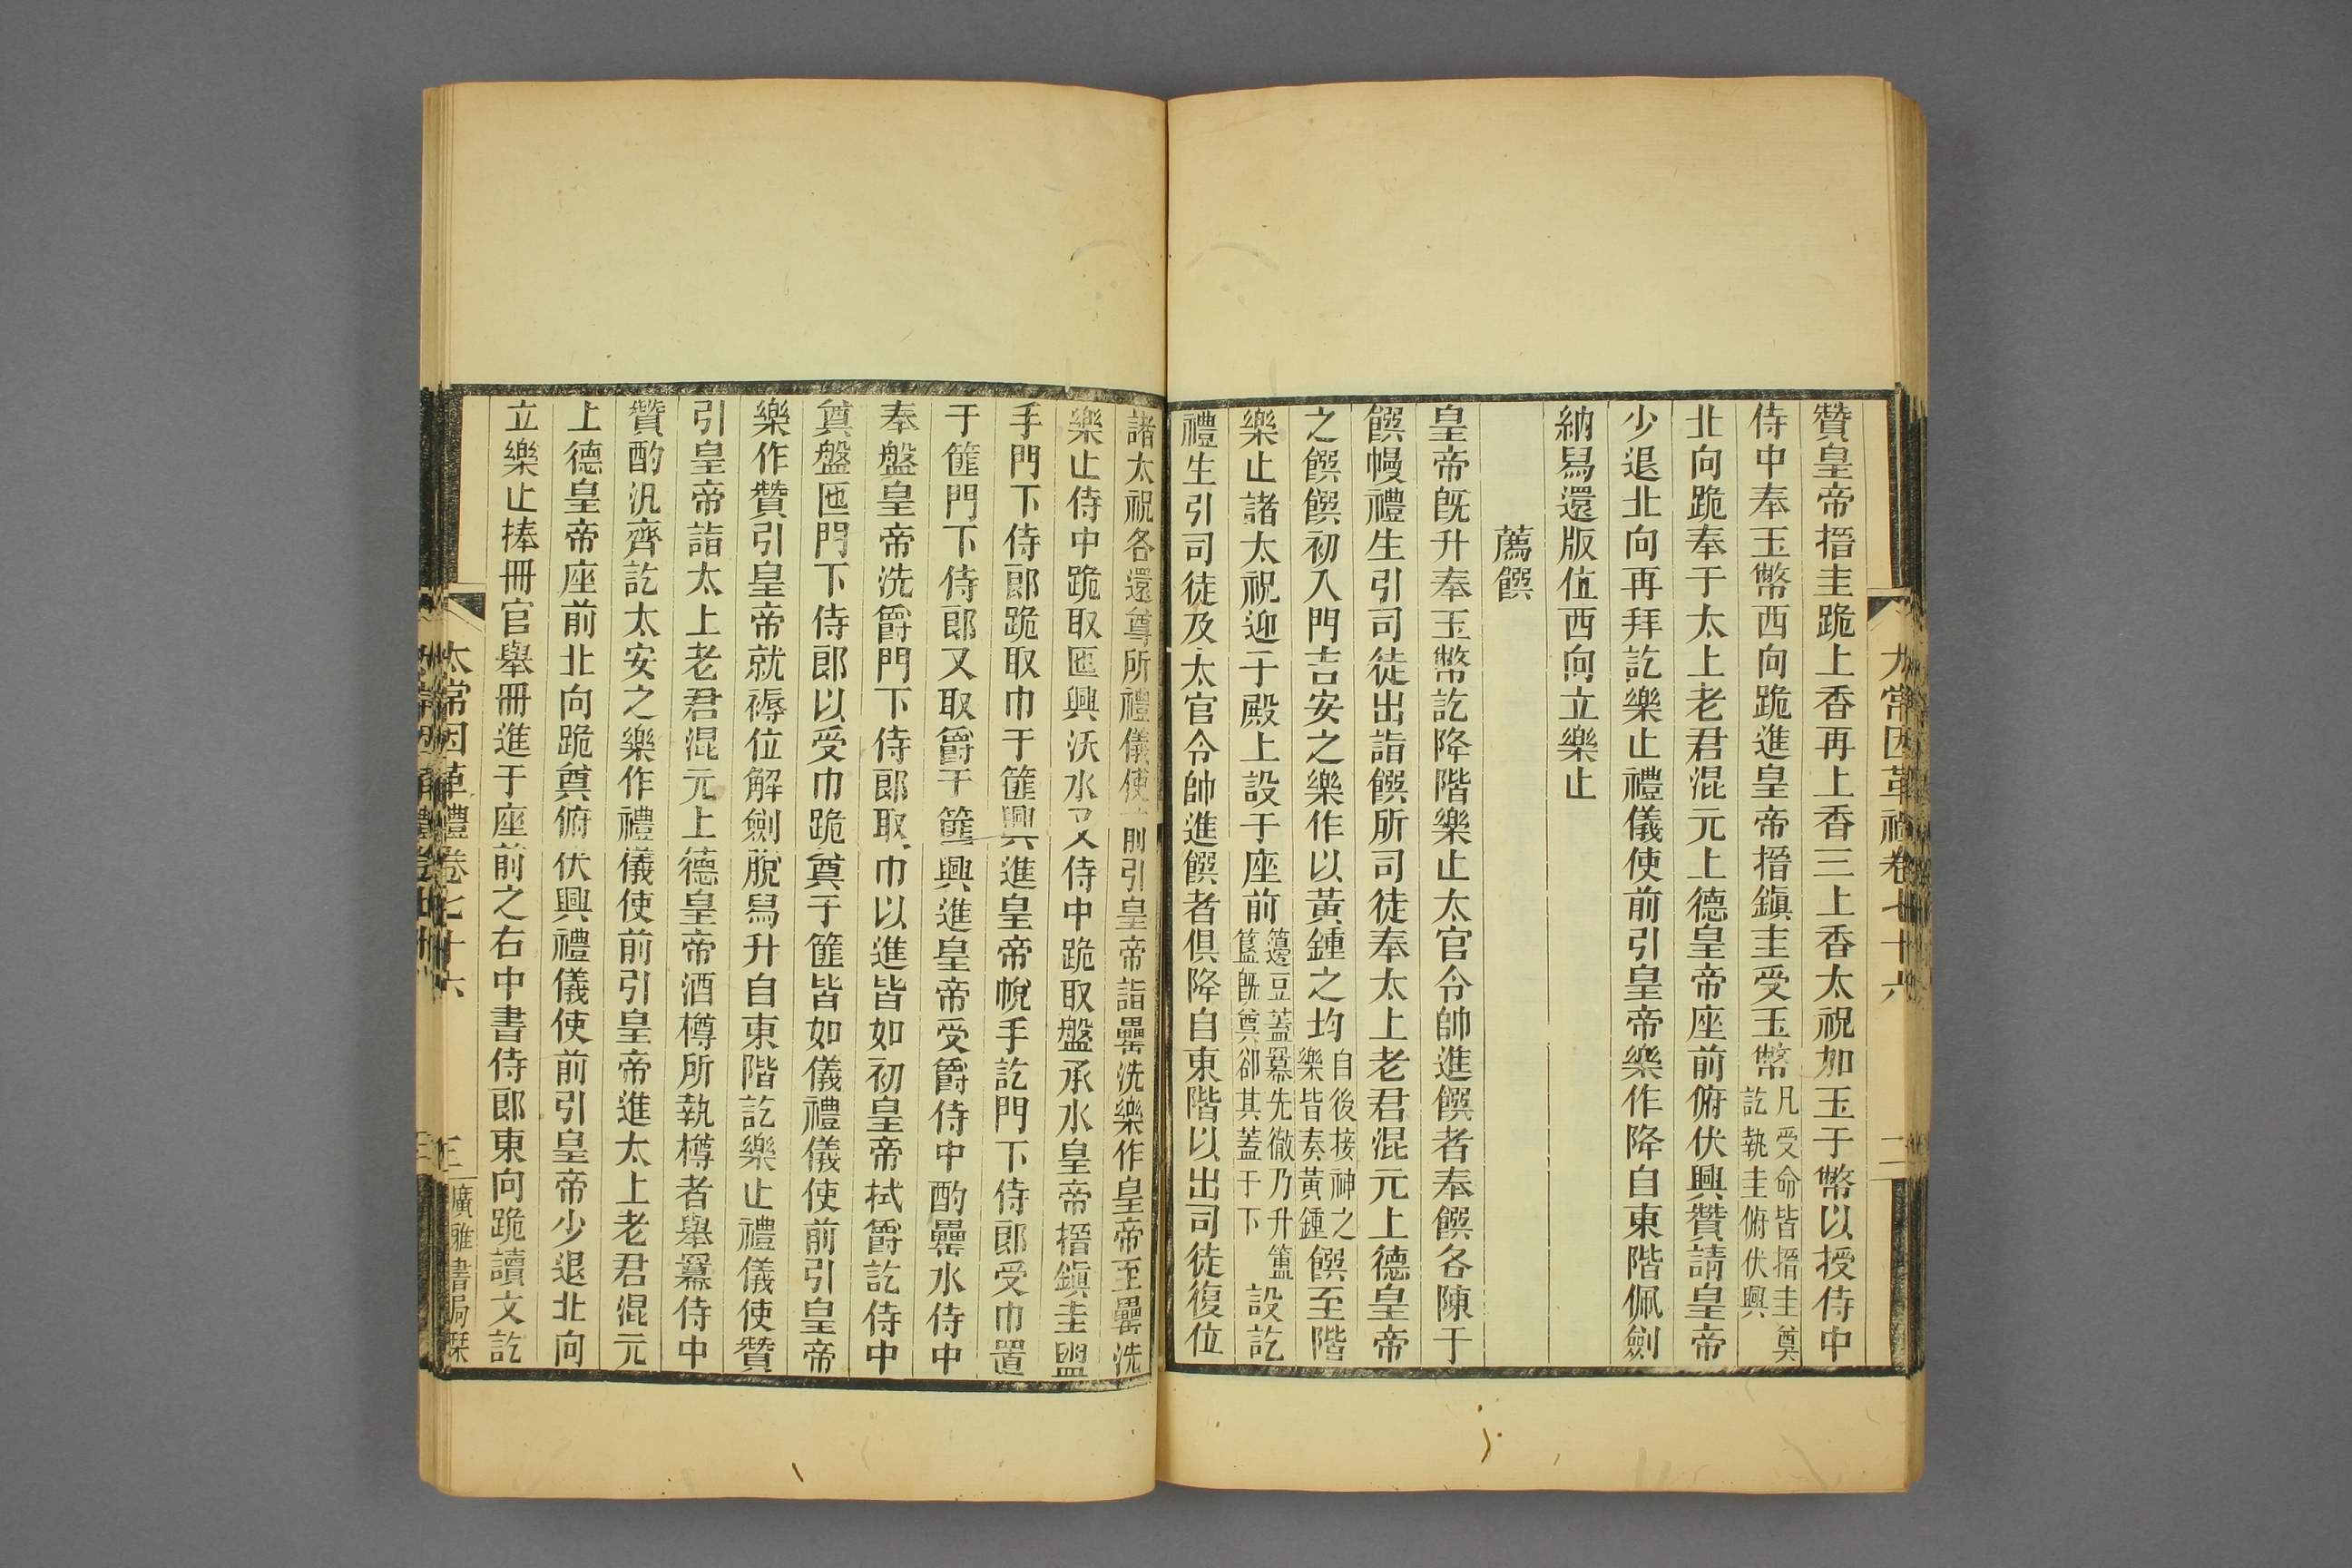 贊皇帝搢圭跪上香再上香三上香太祝加玉于幣以授侍中
侍中奉玉幣西向跪進皇帝搢鎭圭受玉幣凡受命皆搢圭奠訖執圭俯伏興
北向跪奉于太上老君混元上德皇帝座前俯伏興贊請皇帝
少退北向再拜訖樂止禮儀使前引皇帝樂作降自東階佩劍
納舄還版位西向立樂止
薦饌
皇帝旣升奉玉幣訖降階樂止太官令帥進饌者奉饌各陳于
饌幔禮生引司徒出詣饌所司徒奉太上老君混元上德皇帝
之饌饌初入門吉安之樂作以黃鍾之均自後接神之樂皆奏黃鍾饌至階
樂止諸太祝迎于殿上設于座前籩豆蓋冪先徹乃升簠簋旣奠卻其蓋于下設訖
禮生引司徒及太官令帥進饌者俱降自東階以出司徒復位
太常因革禮卷七十六
二
諸太祝各還尊所禮儀使前引皇帝詣罍洗樂作皇帝至罍洗
樂止侍中跪取匜興沃水又侍中跪取盤承水皇帝搢鎭圭盥
手門下侍郎跪取巾于篚興進皇帝帨手訖門下侍郎受巾置
于篚門下侍郎又取爵于篚興進皇帝受爵侍中酌罍水侍中
奉盤皇帝洗爵門下侍郎取巾以進皆如初皇帝拭爵訖侍中
奠盤匜門下侍郎以受巾跪奠于篚皆如儀禮儀使前引皇帝
樂作贊引皇帝就褥位解劍脫舄升自東階訖樂止禮儀使贊
引皇帝詣太上老君混元上德皇帝酒樽所執樽者舉冪侍中
贊酌汎齊訖太安之樂作禮儀使前引皇帝進太上老君混元
上德皇帝座前北向跪奠俯伏興禮儀使前引皇帝少退北向
立樂止捧冊官舉冊進于座前之右中書侍郎東向跪讀文訖
太常因革禮卷七十六
三
廣雅書局栞